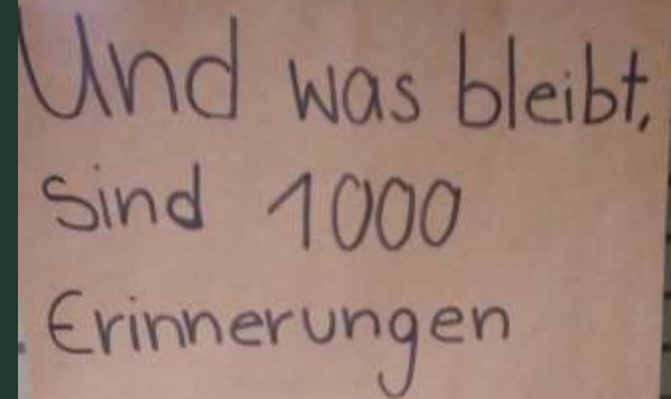 Und was bleibt,
sind 1000
Erinnerungen